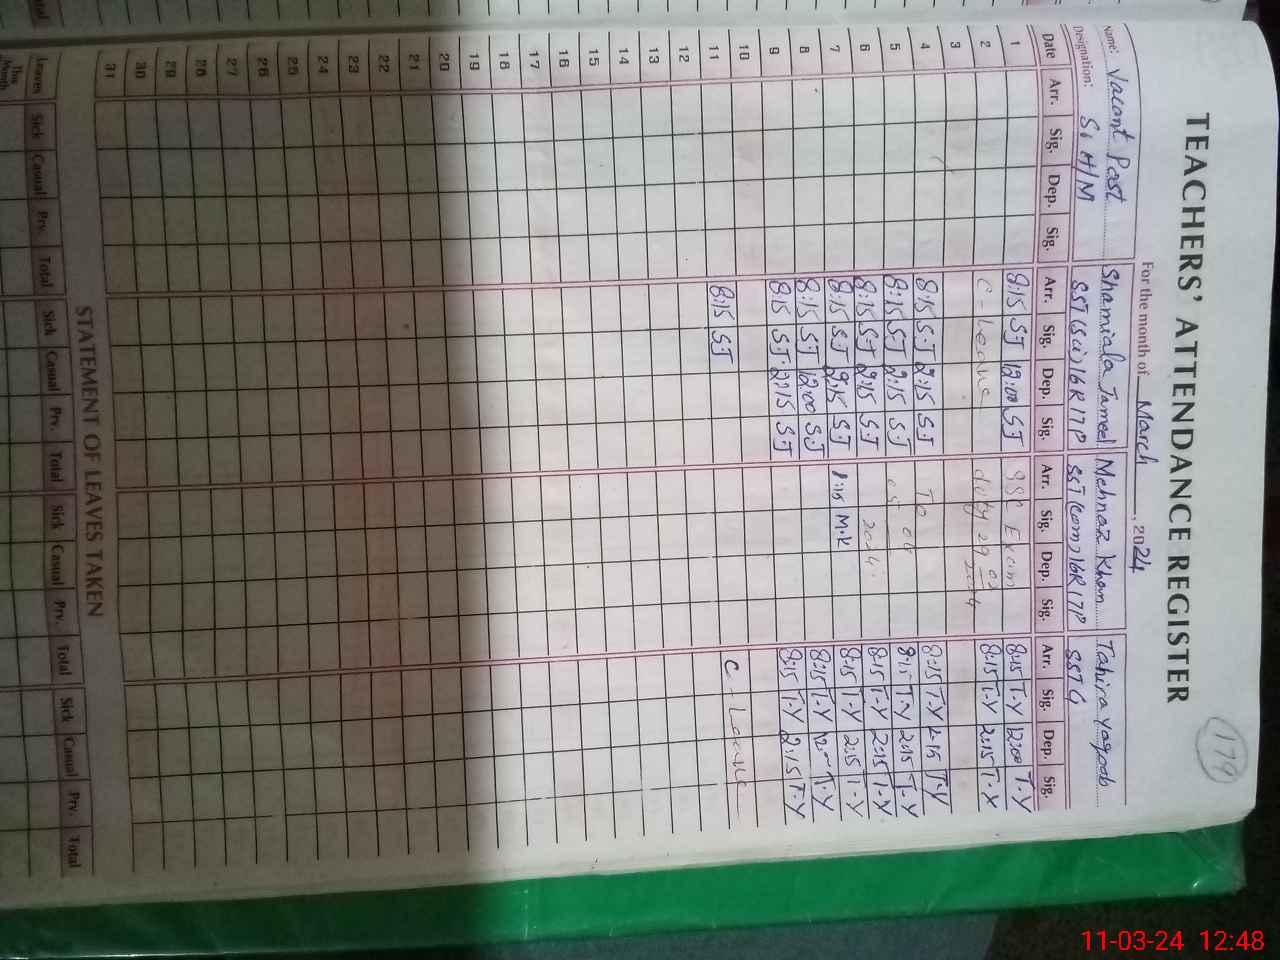 179
TEACHERS' ATTENDANCE REGISTER
For the month of March, 2024
Name: Vacant Post Shamiala Jameel Mehnaz Khan Tahira Yaqoob
Designation: S. H/M SST(Sci)16R17P SST(com)16R17P SST G
Date Arr. Sig. Dep. Sig. Arr. Sig. Dep. Sig. Arr. Sig. Dep. Sig. Arr. Sig. Dep. Sig.
1 8:15 SJ 12:00 SJ SSC Exam 8:15 T.Y 12:00 T.Y
2 C-Leave duty 29 02 2024 8:15 T.Y 2:15 T.Y
3
4 8:15 SJ 2:15 SJ To 8:15 T.Y 2:15 T.Y
5 8:15 SJ 2:15 SJ 8:15 T.Y 2:15 T.Y
6 8:15 SJ 2:15 SJ 2024 8:15 T.Y 2:15 T.Y
7 8:15 SJ 2:15 SJ 1:15 M.K 8:15 T.Y 2:15 T.Y
8 8:15 SJ 12:00 SJ 8:15 T.Y T.Y
9 8:15 SJ 2:15 SJ 8:15 T.Y 2:15 T.Y
10
11 8:15 SJ C-Leave
12
13
14
15
16
17
18
19
20
21
22
23
24
25
26
27
28
29
30
31
STATEMENT OF LEAVES TAKEN
Leaves Sick Casual Prv. Total Sick Casual Prv. Total Sick Casual Prv. Total Sick Casual Prv. Total
This Month
11-03-24 12:48